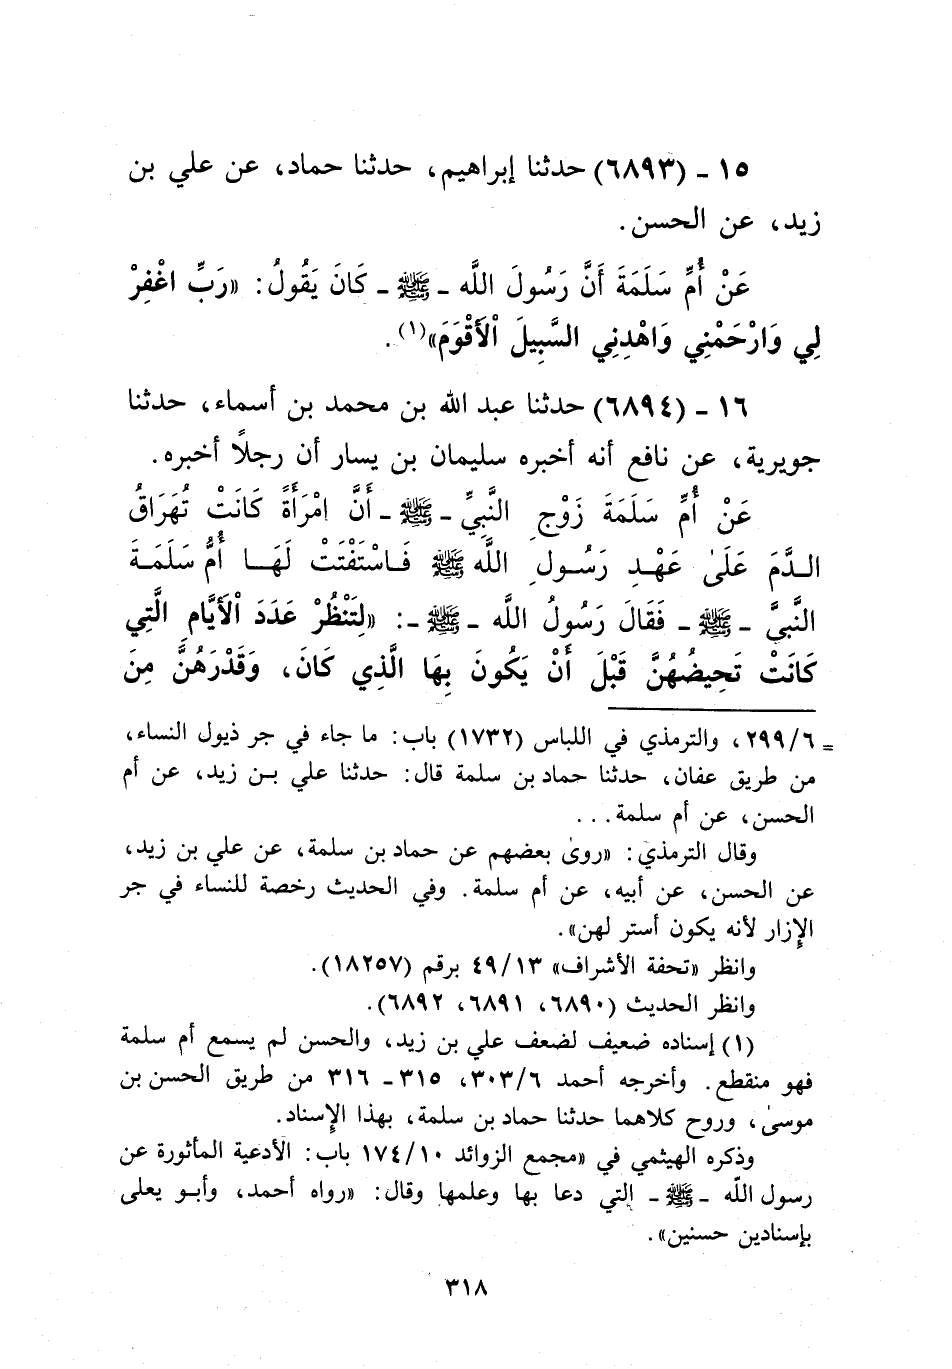 ١٥ - (٦٨٩٣) حدثنا إبراهيم، حدثنا حماد، عن علي بن
زيد، عن الحسن.
عَنْ أُمِّ سَلَمَةَ أَنَّ رَسُولَ اللَّه - ﷺ - كَانَ يَقُولُ: «رَبِّ اغْفِرْ
لِي وَارْحَمْنِي وَاهْدِنِي السَّبِيلَ الْأَقْوَمَ»(١).
١٦ - (٦٨٩٤) حدثنا عبد الله بن محمد بن أسماء، حدثنا
جويرية، عن نافع أنه أخبره سليمان بن يسار أن رجلًا أخبره.
عَنْ أُمِّ سَلَمَةَ زَوْجِ النَّبِيِّ - ﷺ - أَنَّ امْرَأَةً كَانَتْ تُهَرَاقُ
الدَّمَ عَلَىٰ عَهْدِ رَسُولِ اللَّه ﷺ فَاسْتَفْتَتْ لَهَا أُمُّ سَلَمَةَ
النَّبِيَّ - ﷺ - فَقَالَ رَسُولُ اللَّه - ﷺ -: «لِتَنْظُرْ عَدَدَ الْأَيَّامِ الَّتِي
كَانَتْ تَحِيضُهُنَّ قَبْلَ أَنْ يَكُونَ بِهَا الَّذِي كَانَ، وَقَدْرَهُنَّ مِنَ
= ٢٩٩/٦، والترمذي في اللباس (١٧٣٢) باب: ما جاء في جر ذيول النساء،
من طريق عفان، حدثنا حماد بن سلمة قال: حدثنا علي بن زيد، عن أم
الحسن، عن أم سلمة...
وقال الترمذي: «روىٰ بعضهم عن حماد بن سلمة، عن علي بن زيد،
عن الحسن، عن أبيه، عن أم سلمة. وفي الحديث رخصة للنساء في جر
الإزار لأنه يكون أستر لهن».
وانظر «تحفة الأشراف» ٤٩/١٣ برقم (١٨٢٥٧).
وانظر الحديث (٦٨٩٠، ٦٨٩١، ٦٨٩٢).
(١) إسناده ضعيف لضعف علي بن زيد، والحسن لم يسمع أم سلمة
فهو منقطع. وأخرجه أحمد ٣٠٣/٦، ٣١٥ - ٣١٦ من طريق الحسن بن
موسىٰ، وروح كلاهما حدثنا حماد بن سلمة، بهذا الإسناد.
وذكره الهيثمي في «مجمع الزوائد ١٧٤/١٠ باب: الأدعية المأثورة عن
رسول اللّه - ﷺ - التي دعا بها وعلمها وقال: «رواه أحمد، وأبو يعلى
بإسنادين حسنين».
٣١٨